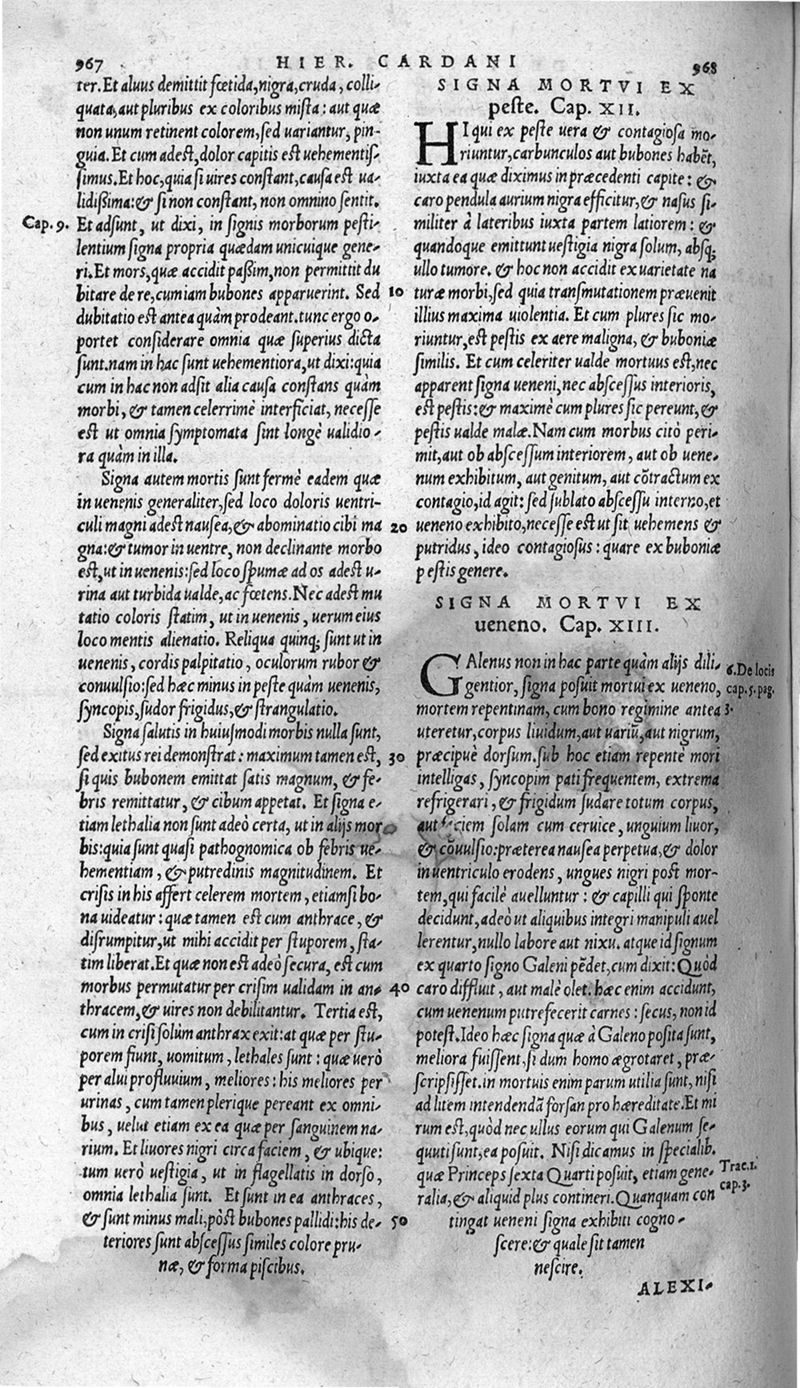 967
HIER. CARDANI
968
ter. Et aluus demittit fœtida, nigra, cruda, colli-
quata, aut pluribus ex coloribus mista: aut quæ
non unum retinent colorem, sed uariantur, pin-
guia. Et cum adest, dolor capitis est uehementis-
simus. Et hoc, quia si uires constant, causa est ua-
lidissima: & si non constant, non omnino sentit.
Cap. 9.
Et adsunt, ut dixi, in signis morborum pesti-
lentium signa propria quædam unicuique gene-
ri. Et mors, quæ accidit passim, non permittit du
bitare de re, cum iam bubones apparuerint. Sed
dubitatio est antea quàm prodeant. tunc ergo o-
portet considerare omnia quæ superius dicta
sunt. nam in hac sunt uehementiora, ut dixi: quia
cum in hac non adsit alia causa constans quàm
morbi, & tamen celerrimè interficiat, necesse
est ut omnia symptomata sint longè ualidio-
ra quàm in illa.
Signa autem mortis sunt fermè eadem quæ
in uenenis generaliter, sed loco doloris uentri-
culi magni adest nausea, & abominatio cibi ma
gna: & tumor in uentre, non declinante morbo
est, ut in uenenis: sed loco spumæ ad os adest u-
rina aut turbida ualde, ac fœtens. Nec adest mu
tatio coloris statim, ut in uenenis, uerum eius
loco mentis alienatio. Reliqua quinq; sunt ut in
uenenis, cordis palpitatio, oculorum rubor &
conuulsio: sed hæc minus in peste quàm uenenis,
syncopis, sudor frigidus, & strangulatio.
Signa salutis in huiusmodi morbis nulla sunt,
sed exitus rei demonstrat: maximum tamen est,
si quis bubonem emittat satis magnum, & fe-
bris remittatur, & cibum appetat. Et signa e-
tiam lethalia non sunt adeò certa, ut in alijs mor
bis: quia sunt quasi pathognomica ob febris ue-
hementiam, & putredinis magnitudinem. Et
crisis in his affert celerem mortem, etiamsi bo-
na uideatur: quæ tamen est cum anthrace, &
disrumpitur, ut mihi accidit per stuporem, sta-
tim liberat. Et quæ non est adeò secura, est cum
morbus permutatur per crisim ualidam in an-
thracem, & uires non debilitantur. Tertia est,
cum in crisi solùm anthrax exit: at quæ per stu-
porem fiunt, uomitum, lethales sunt: quæ uerò
per alui profluuium, meliores: his meliores per
urinas, cum tamen plerique pereant ex omni-
bus, uelut etiam ex ea quæ per sanguinem na-
rium. Et liuores nigri circa faciem, & ubique:
tum uerò uestigia, ut in flagellatis in dorso,
omnia lethalia sunt. Et sunt in ea anthraces,
& sunt minus mali, pòst bubones pallidi: his de-
teriores sunt abscessus similes colore pru-
næ, & forma piscibus.
10
20
30
40
50
SIGNA MORTVI EX
peste. Cap. XII.
HI qui ex peste uera & contagiosa mo-
riuntur, carbunculos aut bubones habẽt,
iuxta ea quæ diximus in præcedenti capite: &
caro pendula aurium nigra efficitur, & nasus si-
militer à lateribus iuxta partem latiorem: &
quandoque emittunt uestigia nigra solum, absq;
ullo tumore. & hoc non accidit ex uarietate na
turæ morbi, sed quia transmutationem præuenit
illius maxima uiolentia. Et cum plures sic mo-
riuntur, est pestis ex aere maligna, & buboniæ
similis. Et cum celeriter ualde mortuus est, nec
apparent signa ueneni, nec abscessus interioris,
est pestis: & maximè cum plures sic pereunt, &
pestis ualde malæ. Nam cum morbus citò peri-
mit, aut ob abscessum interiorem, aut ob uene-
num exhibitum, aut genitum, aut cõtractum ex
contagio, id agit: sed sublato abscessu interno, et
ueneno exhibito, necesse est ut sit uehemens &
putridus, ideo contagiosus: quare ex buboniæ
pestis genere.
SIGNA MORTVI EX
ueneno. Cap. XIII.
GAlenus non in hac parte quàm alijs dili-
gentior, signa posuit mortui ex ueneno,
6. De locis
cap. 5. pag.
3.
mortem repentinam, cum bono regimine antea
uteretur, corpus liuidum, aut uariũ, aut nigrum,
præcipuè dorsum. sub hoc etiam repentè mori
intelligas, syncopim pati frequentem, extrema
refrigerari, & frigidum sudare totum corpus,
aut faciem solam cum ceruice, unguium liuor,
& cõuulsio: præterea nausea perpetua, & dolor
in uentriculo erodens, ungues nigri post mor-
tem, qui facilè auelluntur: & capilli qui sponte
decidunt, adeò ut aliquibus integri manipuli auel
lerentur, nullo labore aut nixu. atque id signum
ex quarto signo Galeni pẽdet, cum dixit: Quòd
caro diffluit, aut malè olet. hæc enim accidunt,
cum uenenum putrefecerit carnes: secus, non id
potest. Ideo hæc signa quæ à Galeno posita sunt,
meliora fuissent, si dum homo ægrotaret, præ-
scripsisset. in mortuis enim parum utilia sunt, nisi
ad litem intendendã forsan pro hæreditate. Et mi
rum est, quòd nec ullus eorum qui Galenum se-
quuti sunt, ea posuit. Nisi dicamus in specialib.
quæ Princeps sexta Quarti posuit, etiam gene-
Trac. 1.
cap. 3.
ralia, & aliquid plus contineri. Quanquam con
tingat ueneni signa exhibiti cogno-
scere: & quale sit tamen
nescire.
ALEXI-